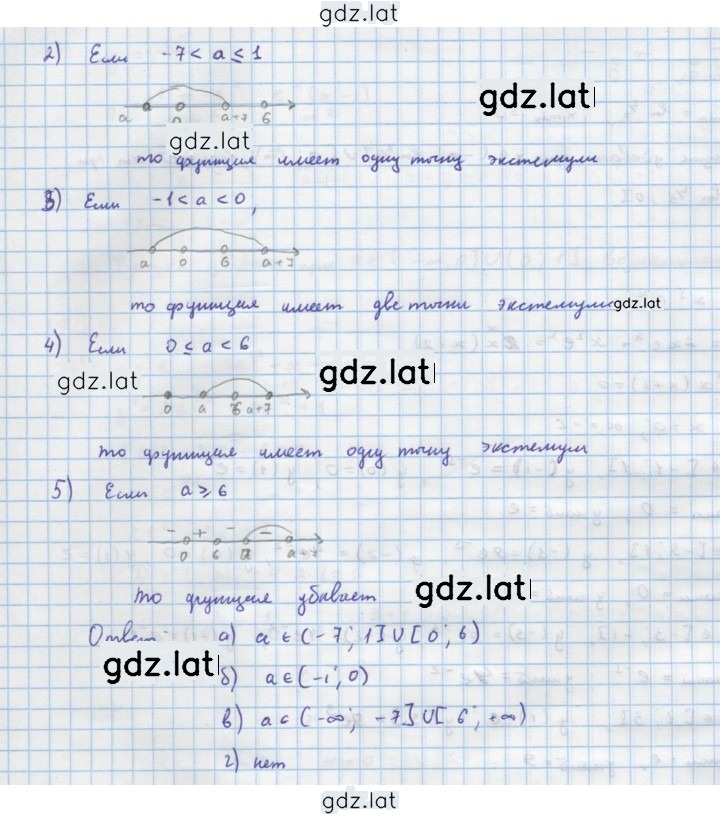 gdz.lat
2) Если -7 < a ≤ 1
gdz.lat
a 0 a+7 6
gdz.lat
то функция имеет одну точку экстемули
3) Если -1 < a < 0,
a 0 6 a+7
то функция имеет две точки экстемули gdz.lat
4) Если 0 ≤ a < 6
gdz.lat
gdz.lat
0 a 6 a+7
то функция имеет одну точку экстемум
5) Если a ≥ 6
- + - -
0 6 a a+7
gdz.lat
то функция убывает
Ответ: а) a ∈ (-7; 1] U [0; 6)
gdz.lat
б) a ∈ (-1; 0)
в) a ∈ (-∞; -7] U [6; +∞)
г) нет
gdz.lat